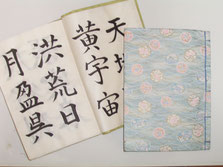 天地
黄宇宙
洪荒日
月盈昃